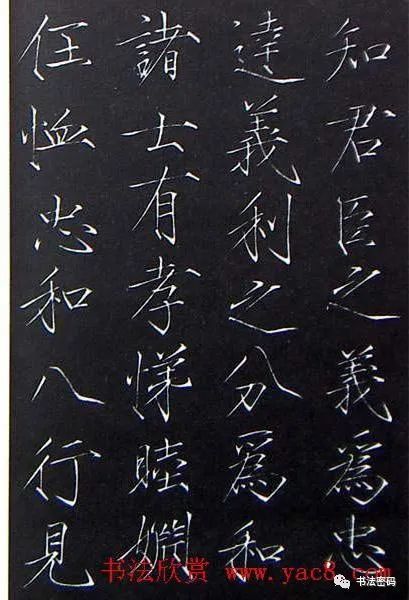 知君臣之義為忠
達義利之分爲和
諸士有孝悌睦婣
任恤忠和八行見
书法欣赏 www.yac8.com
书法密码